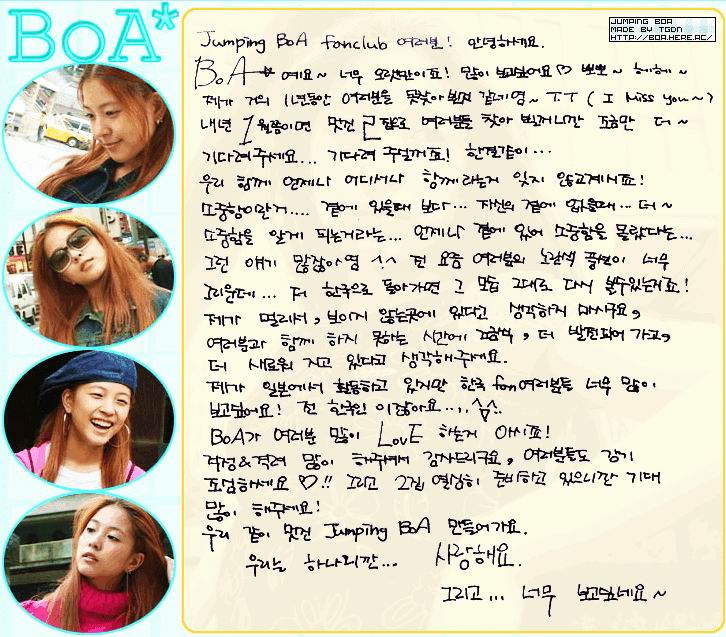 BoA*
JUMPING BOA
MADE BY TGDN
HTTP://BOA.HERE.AC/
Jumping BoA fanclub 여러분! 안녕하세요.
BoA* 예요~ 너무 오랫만이죠! 많이 보고싶어요♡ 뽀뽀~ 헤헤~
제가 거의 1년동안 여러분을 못찾아 뵌거 같네영~ T.T ( I miss you~)
내년 1월쯤이면 멋진 2집으로 여러분들 찾아 뵐꺼니깐 조금만 더~
기다려주세요... 기다려 주실꺼죠! 한결같이...
우리 함께 언제나 어디서나 함께라는거 잊지 않고계시죠!
소중함이란거.... 곁에 있을때 보다... 자신의 곁에 없을때... 더~
소중함을 알게 되는거라는... 언제나 곁에 있어 소중함을 몰랐다는...
그런 얘기 많잖아영 ^^ 전 요즘 여러분의 노란색 풍선이 너무
그리운데... 저 한국으로 돌아가면 그 모습 그대로 다시 볼수있는거죠!
제가 멀리서, 보이지 않는곳에 있다고 생각하지 마시구요,
여러분과 함께 하지 못하는 시간에 조금씩, 더 발전되어 가고,
더 새로워 지고 있다고 생각해주세요.
제가 일본에서 활동하고 있지만 한국 fan여러분들 너무 많이
보고싶어요! 전 한국인 이잖아요....^^.
BoA가 여러분 많이 LovE 하는거 아시죠!
걱정&격려 많이 해주셔서 감사드리구요, 여러분들도 감기
조심하세요♡!! 그리고 2집 열심히 준비하고 있으니깐 기대
많이 해주세요!
우리 같이 멋진 Jumping BoA 만들어가요.
우리는 하나니깐... 사랑해요.
그리고... 너무 보고싶네요~